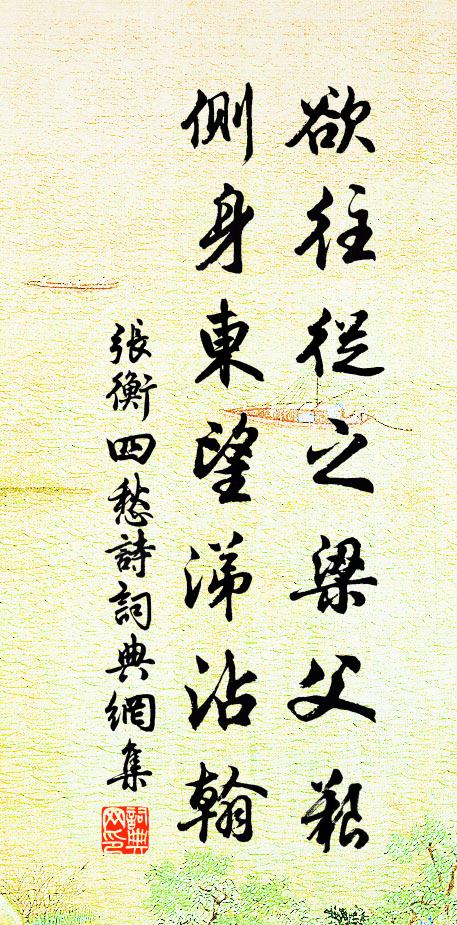 欲往從之梁父艱
側身東望涕沾翰
張衡四愁詩詞典網集
詞典
网印